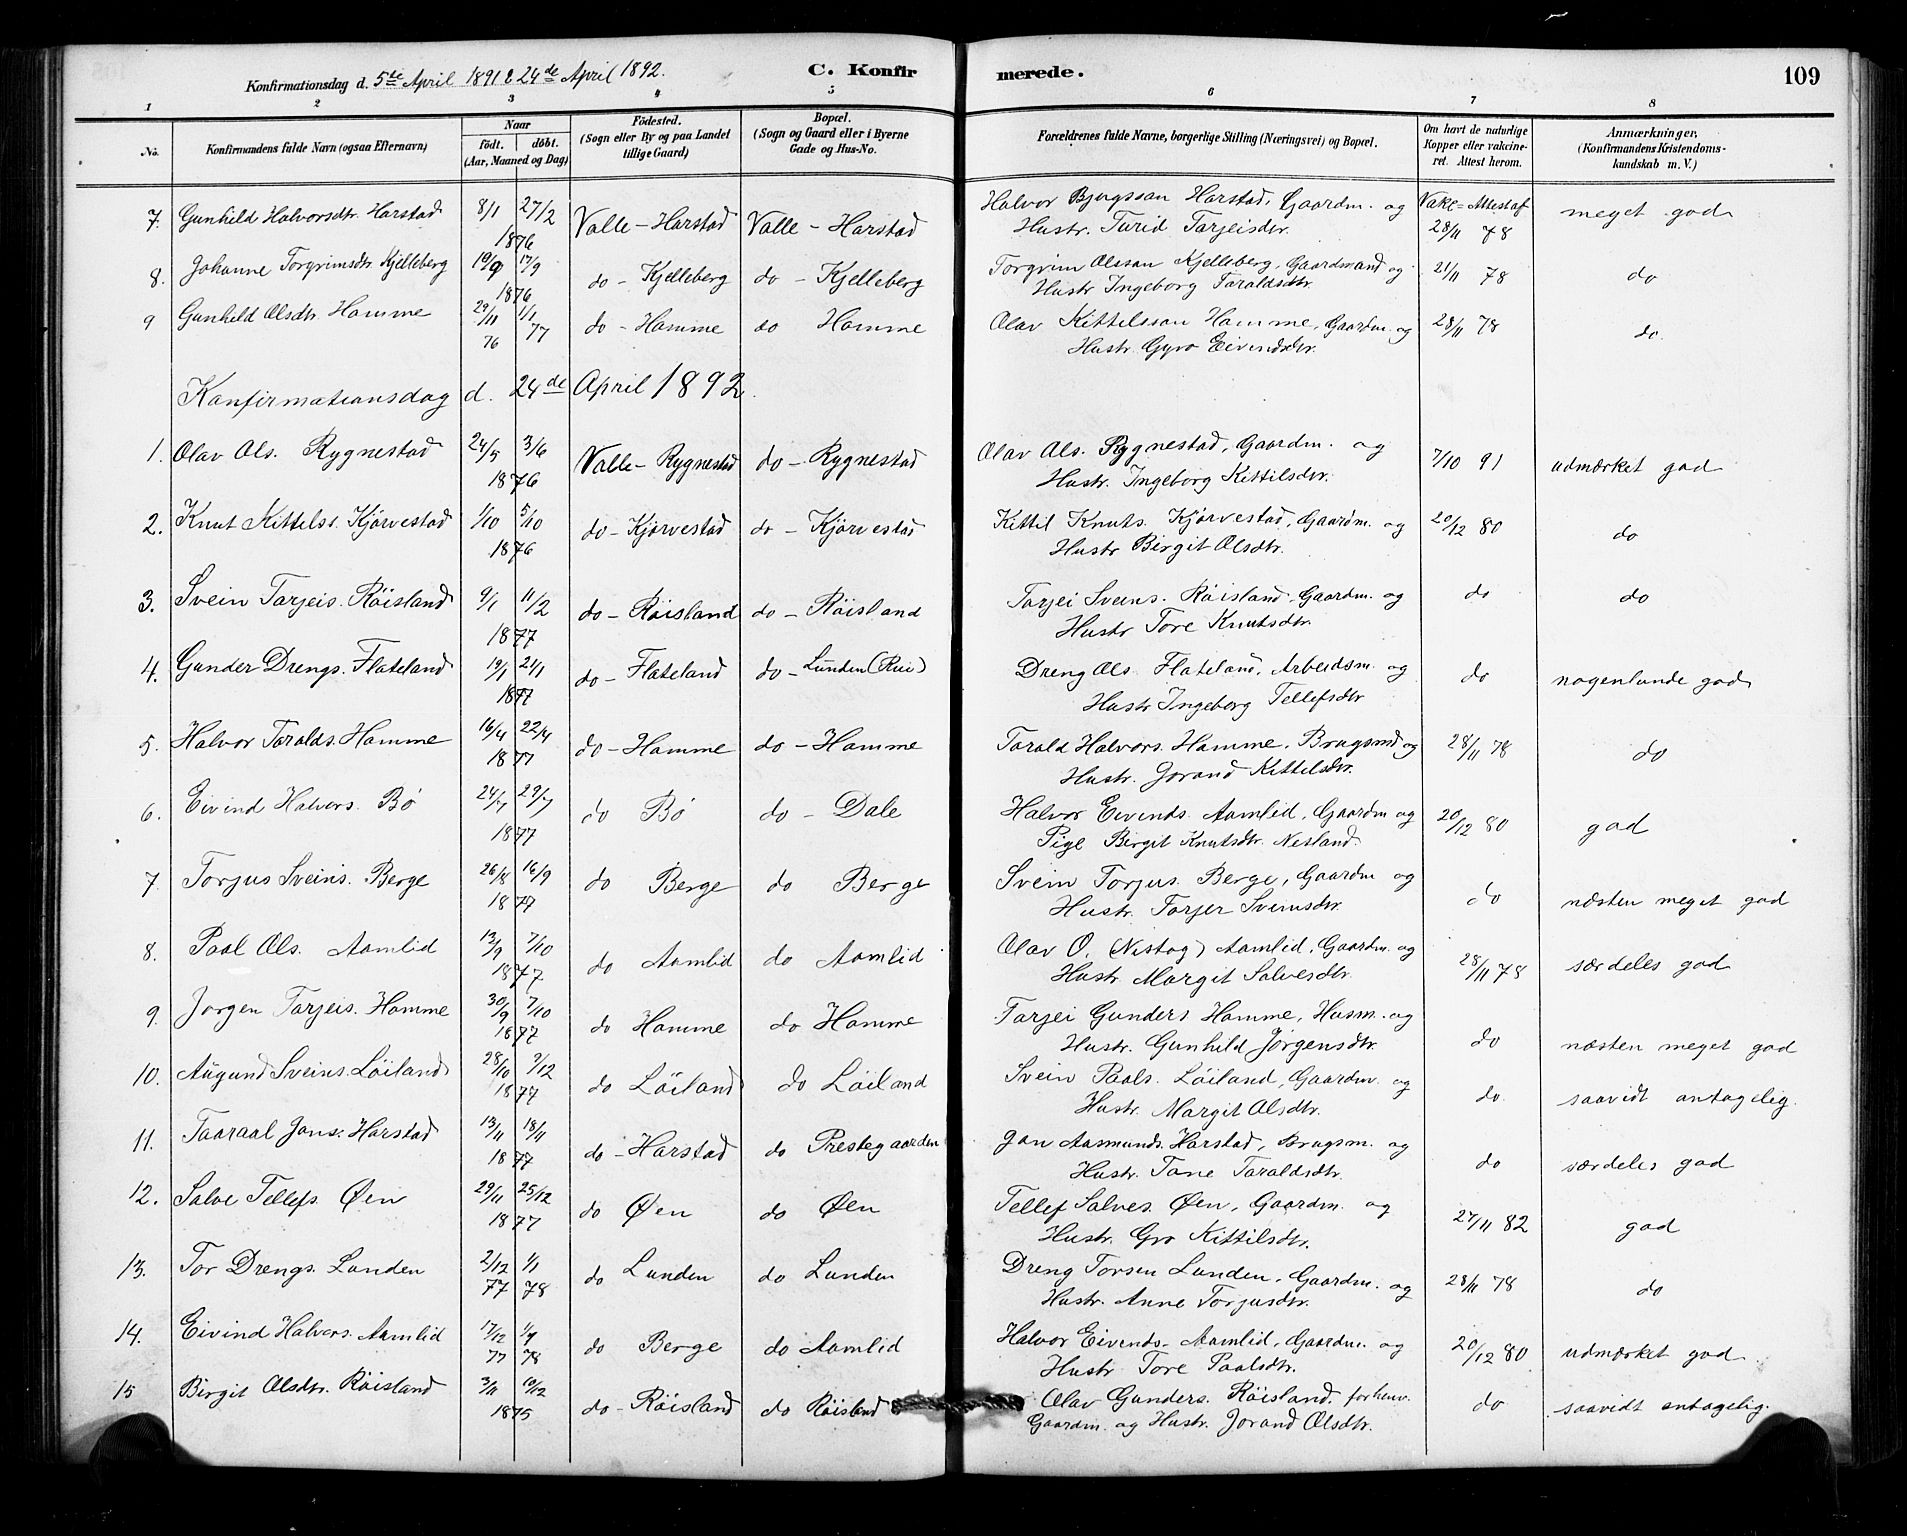 Konfirmationsdag d. 5te April 1891 & 24de April 1892. C. Konfirmerede. 109
1 2 3 4 5 6 7 8
No. Konfirmandens fulde Navn (ogsaa Efternavn) Naar født. døbt. (Aar, Maaned og Dag) Fødested. (Sogn eller By og paa Landet tillige Gaard) Bopæl. (Sogn og Gaard eller i Byerne Gade og Hus-No. Forældrenes fulde Navne, borgerlige Stilling (Næringsvei) og Bopæl. Om havt de naturlige Kopper eller vakcineret. Attest herom. Anmærkninger, (Konfirmandens Kristendomskundskab m. V.)
7. Gunhild Halvorsdtr. Harstad 8/1 27/2 1876 Valle - Harstad Valle - Harstad Halvor Bjugsson Harstad, Gaardm. og Hustr. Turid Tarjeisdtr. Vakc= Attest af 28/11 78 meget god
8. Johanne Torgrimsdtr. Kjelleberg 10/9 17/9 1876 do - Kjelleberg do - Kjelleberg Torgrim Olsson Kjelleberg, Gaardmand og Hustr. Ingeborg Taraldsdtr. 21/11 78 do
9 Gunhild Olsdtr. Homme 29/11 76 1/1 77 do - Homme do Homme Olav Kittelsson Homme, Gaardm. og Hustr. Gyro Eivindsdtr. 28/11 78 do.
Konfirmationsdag d. 24de April 1892.
1. Olav Ols. Rygnestad 24/5 3/6 1876 Valle - Rygnestad do - Rygnestad Olav Ols. Rygnestad, Gaardm. og Hustr. Ingeborg Kittilsdtr. 7/10 91 udmærket god
2. Knut Kittilss. Kjørvestad 1/10 5/10 1876 do - Kjørvestad do - Kjørvestad Kittil Knuts. Kjørvestad, Gaardm. og Hustr Birgit Olsdtr. 20/12 80 do
3. Svein Tarjeis. Røisland 9/1 11/2 1877 do - Røisland do - Røisland Tarjei Sveins. Røisland, Gaardm. og Hustr Tore Knutsdtr. do do
4. Gunder Drengs. Flateland 19/1 21/1 1877 do - Flateland do - Lunden (Rui) Dreng Ols. Flateland, Arbeidsm. og Hustr Ingeborg Tellefsdtr do nogenlunde god
5. Halvor Taralds. Homme 16/4 22/4 1877 do - Homme do - Homme Tarald Halvors. Homme, Brugsmd og Hustr. Jorand Kittilsdtr. 28/11 78 do
6. Eivind Halvors. Bø 24/7 29/7 1877 do Bø do - Dale Halvor Eivinds. Aamlid, Gaardm og Pige Birgit Knutsdtr. Nesland. 20/12 80 god
7. Torjus Sveins. Berge 26/8 16/9 1877 do Berge do Berge Svein Torjus. Berge, Gaardm og Hustr. Torjer Sveinsdtr. do næsten meget god
8. Paal Ols. Aamlid 13/9 7/10 1877 do Aamlid do Aamlid Olav O. (Nistog) Aamlid, Gaardm. og Hustr. Margit Salvesdtr. 28/11 78 særdeles god
9. Jørgen Tarjeis. Homme 30/9 7/10 1877 do Homme do Homme Tarjei Gunders Homme, Husm. og Hustr. Gunhild Jørgensdtr. do næsten meget god
10. Augund Sveins. Løiland 28/10 2/12 1877 do Løiland do Løiland Svein Paals. Løiland, Gaardm. og Hustr. Margit Olsdtr. do. saavidt antagelig.
11. Taaraal Jons. Harstad 13/11 18/11 1877 do - Harstad do Prestegaarden Jon Aasmunds. Harstad, Brugsm. og Hustr. Tone Taraldsdtr. do særdeles god
12. Salve Tellefs. Øen 29/11 25/12 1877 do Øen do Øen Tellef Salves. Øen, Gaardm. og Hustr. Gro Kittilsdtr. 27/11 82 god
13. Tor Drengs. Lunden 2/12 77 1/1 78 do Lunden do Lunden Dreng Torsen Lunden, Gaardm. og Hustr. Anne Torjusdtr. 28/11 78 do
14. Eivind Halvors. Aamlid 17/12 77 78 do Berge do Aamlid Halvor Eivinds. Aamlid, Gaardm. og Hustr Tore Paalsdtr. 20/12 80 udmærket god
15 Birgit Olsdtr. Røisland 3/11 10/12 1875 do - Røisland do Røisland Olav Gunders. Røisland, forhenv. Gaardm. og Hustr. Jorand Olsdtr. do saavidt antagelig.